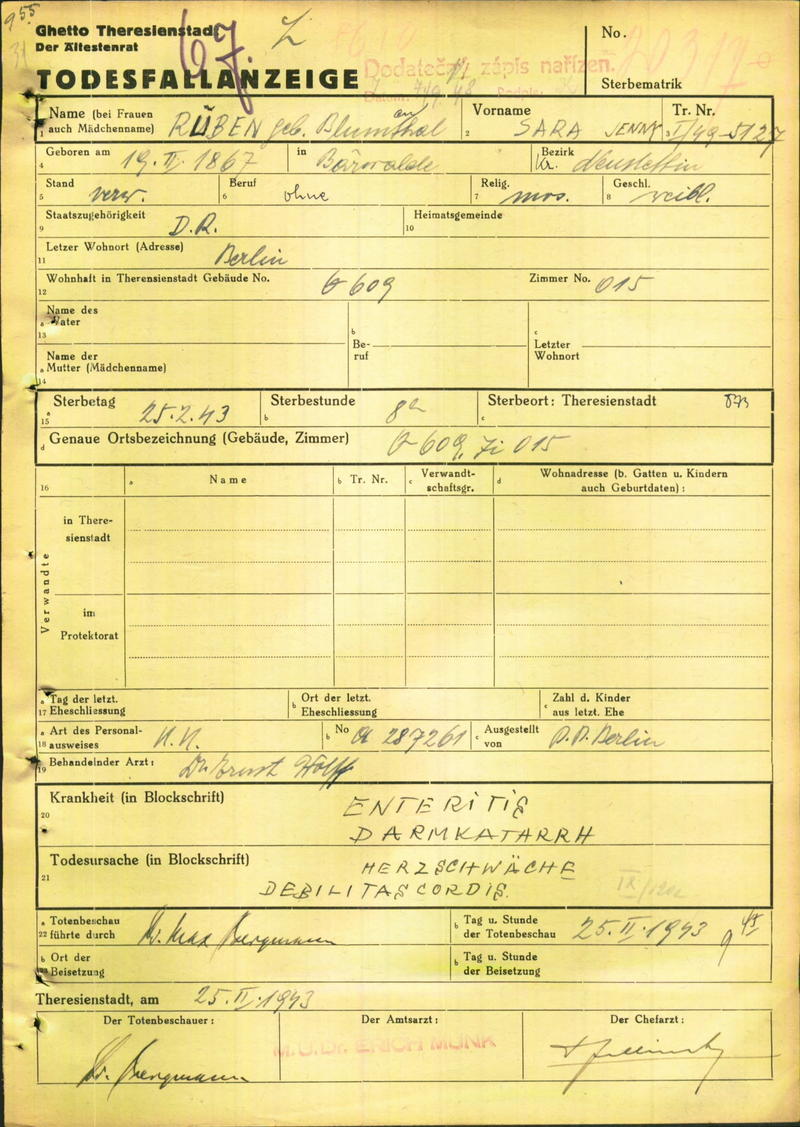 9 55
31
Ghetto Theresienstadt
Der Ältestenrat
TODESFALLANZEIGE
Dodatečný zápis nařízen.
No.
Sterbematrik
Name (bei Frauen
1 auch Mädchenname) RÜBEN geb. Blumenthal
Vorname
2 SARA JENNY
Tr. Nr.
3 I/49-5127
Geboren am
4 19. II. 1867
in Bärwalde
Bezirk
Kr. Neustettin
Stand
5 verw.
Beruf
6 ohne
Relig.
7 mos.
Geschl.
8 weibl.
Staatszugehörigkeit
9 D.R.
Heimatsgemeinde
10
Letzer Wohnort (Adresse)
11 Berlin
Wohnhaft in Theresienstadt Gebäude No.
12 609
Zimmer No. 015
Name des
a Vater
13
b
Be-
ruf
c
Letzter
Wohnort
Name der
a Mutter (Mädchenname)
14
Sterbetag
a
15 25.2.43
Sterbestunde
b 8h
Sterbeort: Theresienstadt
c
d Genaue Ortsbezeichnung (Gebäude, Zimmer) 609, Zi 015
16
a Name
b Tr. Nr.
c Verwandt-
schaftsgr.
d Wohnadresse (b. Gatten u. Kindern
auch Geburtdaten):
Verwandte
in There-
sienstadt
im
Protektorat
a Tag der letzt.
17 Eheschliessung
b Ort der letzt.
Eheschliessung
c Zahl d. Kinder
aus letzt. Ehe
a Art des Personal-
18 ausweises
b No 287261
c Ausgestellt
von P.P. Berlin
19 Behandelnder Arzt: Dr Ernst Wolff
Krankheit (in Blockschrift)
20 ENTERITIS
DARMKATARRH
Todesursache (in Blockschrift)
21 HERZSCHWÄCHE
DEBILITAS CORDIS.
a Totenbeschau
22 führte durch Dr. Max Bergmann
b Tag u. Stunde
der Totenbeschau 25. II. 1943 9 45
b Ort der
Beisetzung
b Tag u. Stunde
der Beisetzung
Theresienstadt, am 25. II. 1943
Der Totenbeschauer:
Der Amtsarzt:
Der Chefarzt:
Dr. Bergmann
M.U.Dr. ERICH MUNK